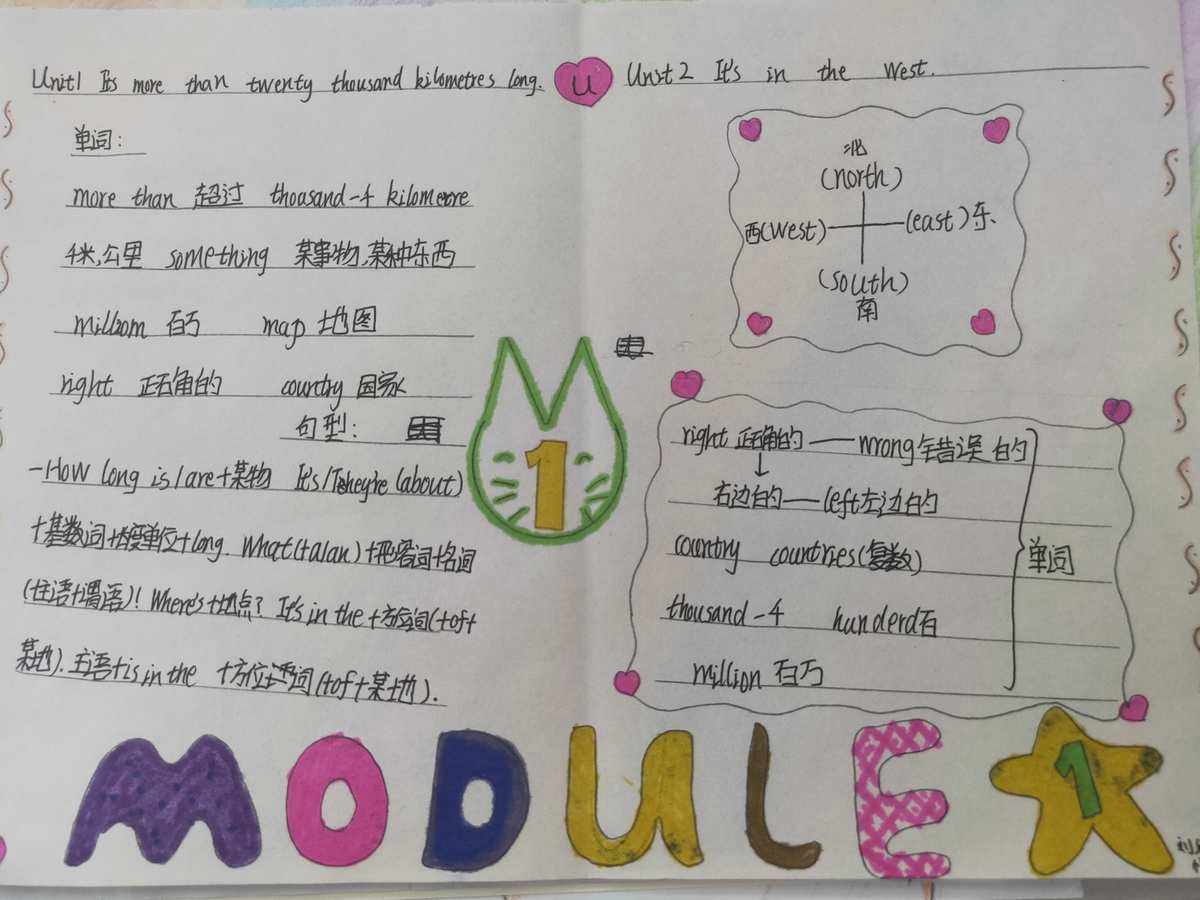 Unit1 It's more than twenty thousand kilometres long.
U
Unit 2 It's in the west.
单词:
more than 超过 thousand-千 kilometre
千米,公里 something 某事物,某种东西
million 百万 map 地图
right 正确的 country 国家
句型:
-How long is/are+某物 It's/They're (about)
+基数词+度量单位+long. What(+a/an)+形容词+名词
(主语+谓语)! Where's+地点? It's in the +方位词(+of+
某地). 主语+is in the +方位词(+of+某地).
北
(north)
西(west) (east)东
(south)
南
right 正确的——wrong错误的
右边的——left左边的
country countries(复数)
单词
thousand-千 hunderd百
million 百万
1
MODULE 1